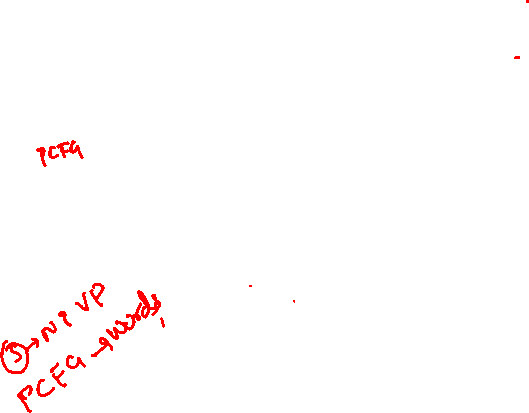 PCFG
S → NP VP
PCFG → words